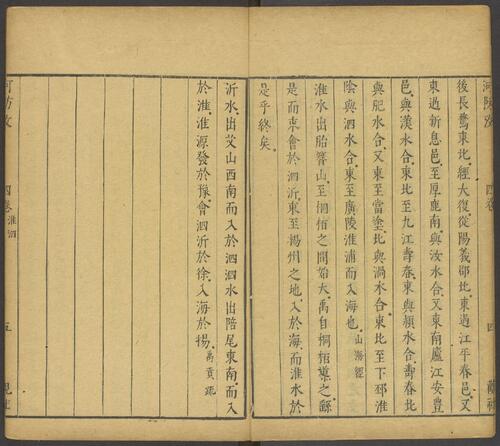 後長鶩東北經大復從陽義鄣北東過江平春邑又
東過新息邑至厚鹿南與汝水合又東南廬江安豊
邑與漢水合東北至九江壽春東與頴水合壽春北
與肥水合又東至當塗北與渦水合東北至下邳淮
陰與泗水合東至廣陵淮浦而入海也 山海經
淮水出胎簪山至桐栢之間始大禹自桐栢導之繇
是而東會於泗沂東至揚州之地入於海而淮水於
是乎終矣
沂水出艾山西南而入於泗泗水出陪尾東南而入
於淮淮源發於豫會泗沂於徐入海於揚 禹貢疏
四卷 淮泗
五